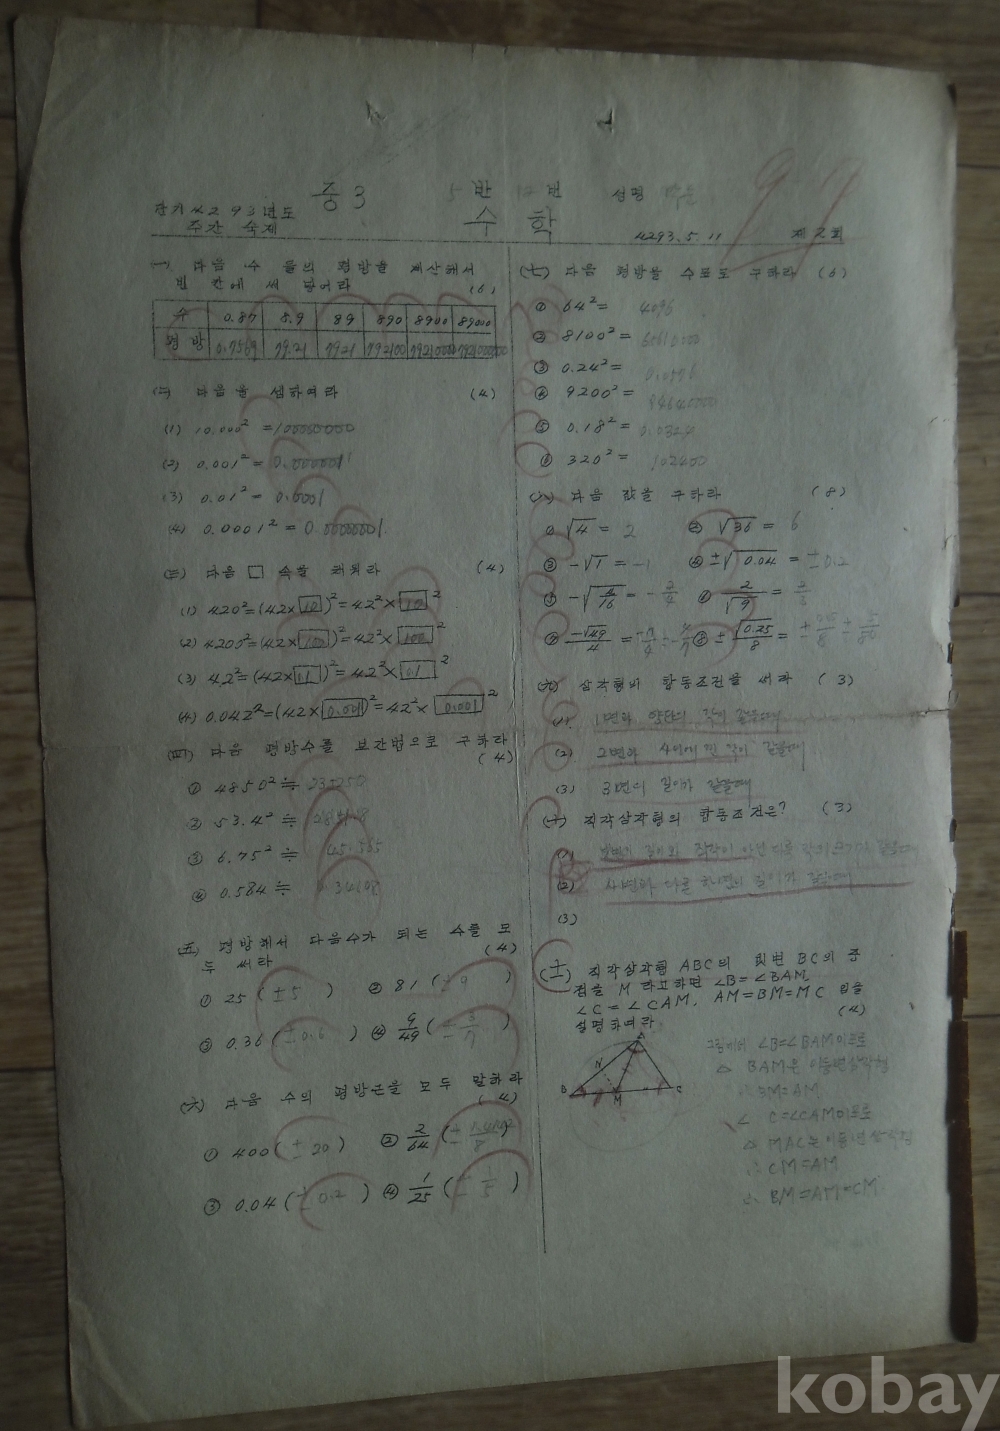 중3 반 번 성명
단기 4293년도
주간 숙제
수학
4293. 5. 11 제2회
(一) 다음 수 들의 평방을 계산해서
빈 칸에 써 넣어라 (6)
수 0.87 8.9 89 890 8900 89000
평방 0.7569 79.21 7921 792100 79210000
(二) 다음을 셈하여라 (4)
(1) 10.000² = 100000000
(2) 0.001² =
(3) 0.01² = 0.0001
(4) 0.0001² =
(三) 다음 □ 속을 채워라 (4)
(1) 420²=(42×10)²=42²×10²
(2) 4200²=(42×100)²=42²×100²
(3) 4.2²=(42×0.1)²=42²×0.1²
(4) 0.042²=(42×0.001)²=42²×0.001²
(四) 다음 평방수를 보간법으로 구하라
(4)
① 4850²≒
② 53.4²≒
③ 6.75²≒
④ 0.584≒
(五) 평방해서 다음수가 되는 수를 모
두 써라 (4)
① 25 (±5) ② 81 (±9)
③ 0.36 (±0.6) ④ 9/49 (±3/7)
(六) 다음 수의 평방근을 모두 말하라
(4)
① 400 (±20) ② 2/64
③ 0.04 (±0.2) ④ 1/25 (±1/5)
(七) 다음 평방을 수표로 구하라 (6)
① 64²= 4096
② 8100²=
③ 0.24²= 0.0576
④ 9200²= 84640000
⑤ 0.18²= 0.0324
⑥ 320²= 102400
(八) 다음 값을 구하라 (8)
① √4 = 2 ② √36 = 6
③ -√1 = -1 ④ ±√0.04 = ±0.2
⑤ -√(4/16) = -2/4 ⑥ 2/√9 = 2/3
⑦ -√49/4 = ⑧ ±√0.25/8 =
(九) 삼각형의 합동조건을 써라 (3)
(1) 1변과 양단의 각이 같을때
(2) 2변과 사이에 낀 각이 같을때
(3) 3변의 길이가 같을때
(十) 직각삼각형의 합동조건은? (3)
(1)
(2) 사변과 다른 한변의 길이가 같을때
(3)
(十一) 직각삼각형 ABC의 빗변 BC의 중
점을 M 라고하면 ∠B=∠BAM,
∠C=∠CAM, AM=BM=MC 임을
설명하여라 (4)
A
N
B M C
∠B=∠BAM이므로
△ BAM은 이등변삼각형
∴ BM=AM
∠C=∠CAM이므로
△ MAC는 이등변삼각형
∴ CM=AM
∴ BM=AM=CM
kobay